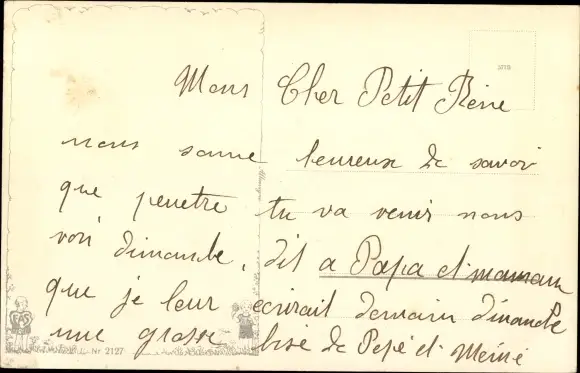 Mons Cher Petit René
nous somme heureux de savoir
que peuetre tu va venir nous
voir dimanche, dit a Papa et maman
que je leur ecrirait demain dimanche
une grosse bise de Pepé et Mémé
Nr 2127